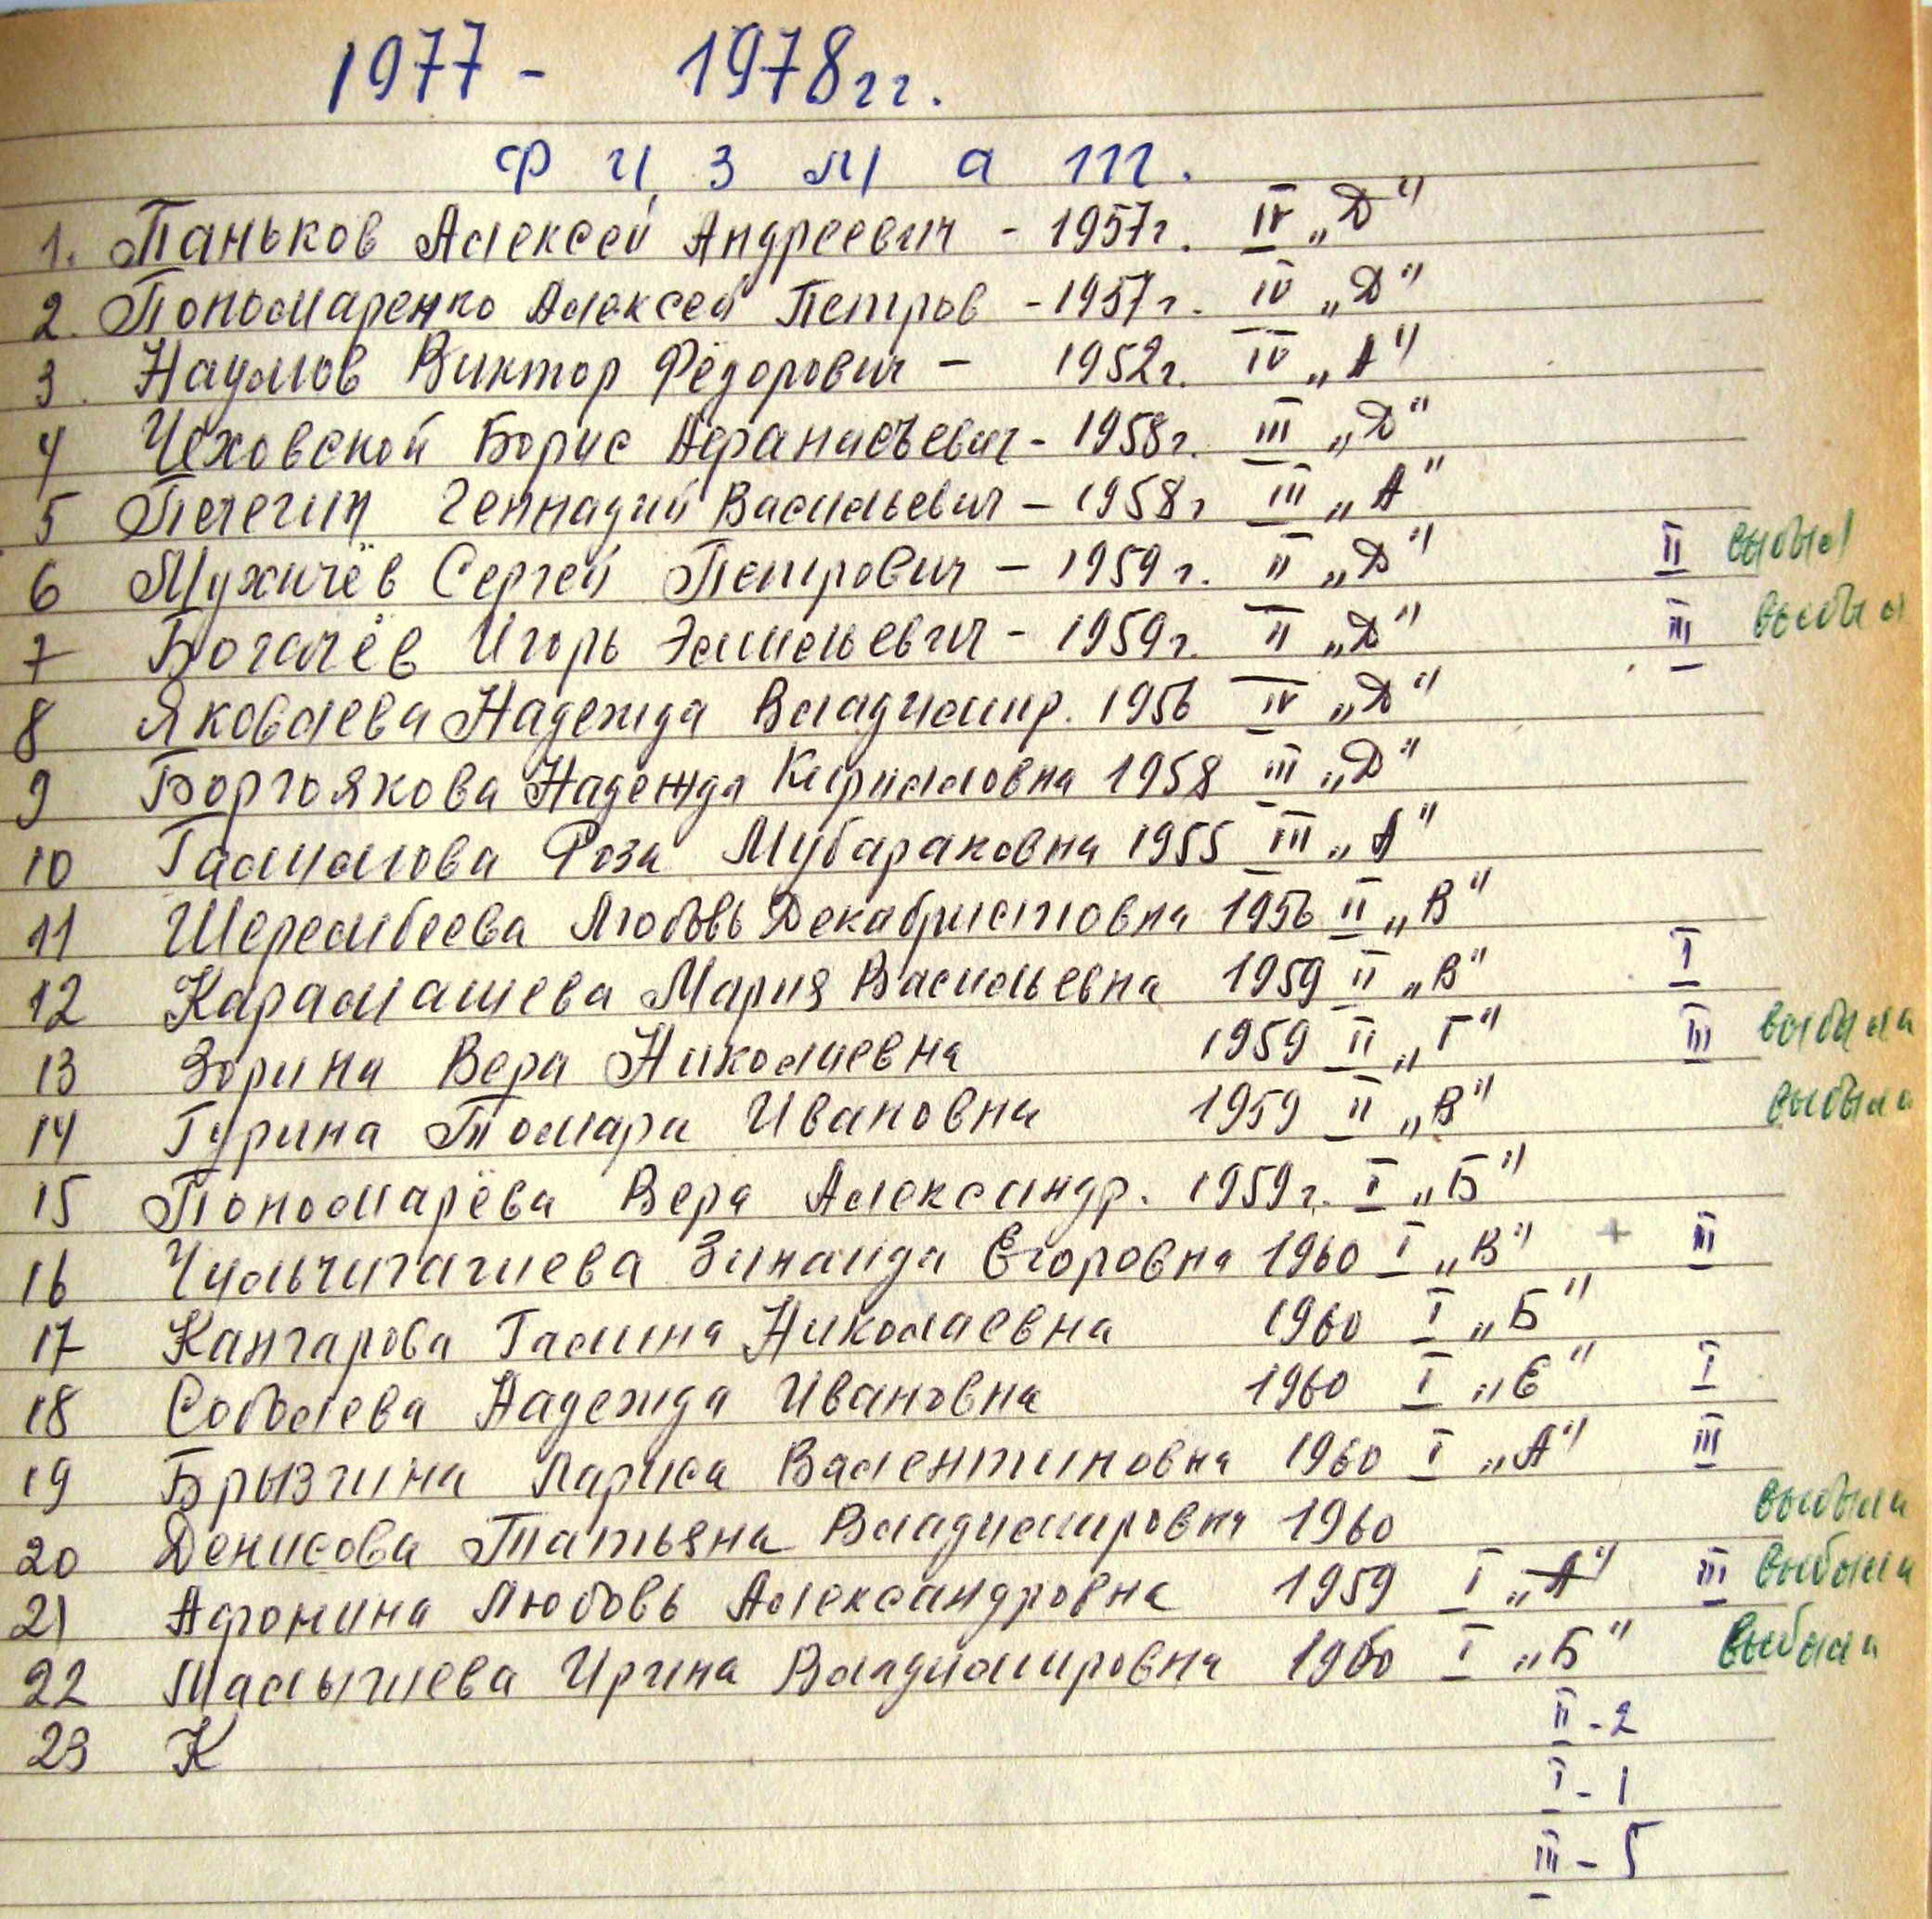 1977 - 1978гг.
Физмат.
1. Паньков Алексей Андреевич - 1957г. IV „Д“
2. Пономаренко Алексей Петров - 1957г. IV „Д“
3. Наумов Виктор Фёдорович - 1952г. IV „А“
4 Чеховской Борис Афанасьевич - 1958г. III „Д“
5 Геннадий Васильевич - 1958г III „А“
6 Мужичёв Сергей Петрович - 1959г. II „Д“ II выбыл
7 Богачёв Игорь Эмильевич - 1959г. II „Д“ III выбыл
8 Яковлева Надежда Владимир. 1956 IV „Д“
9 Боргоякова Надежда Кирилловна 1958 III „Д“
10 Галимова Роза Мубараковна 1955 III „А“
11 Шерембеева Любовь Декабристовна 1956 II „В“
12 Карамашева Мария Васильевна 1959 II „В“ I
13 Зорина Вера Николаевна 1959 II „Г“ III выбыла
14 Гурина Томара Ивановна 1959 II „В“ выбыла
15 Пономарёва Вера Александр. 1959г. I „Б“
16 Чульчигашева Зинаида Егоровна 1960 I „В“ + III
17 Кангарова Галина Николаевна 1960 I „Б“
18 Соболева Надежда Ивановна 1960 I „Е“ I
19 Брызгина Лариса Валентиновна 1960 I „А“ III
20 Денисова Татьяна Владимировна 1960 выбыла
21 Афонина Любовь Александровна 1959 I „А“ III выбыла
22 Малышева Ирина Владимировна 1960 I „Б“ выбыла
23 К
II - 2
I - 1
III - 5